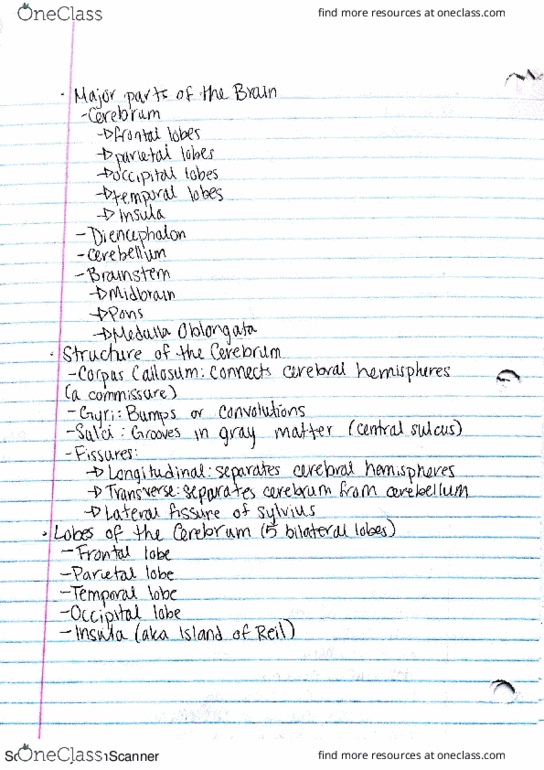 OneClass
find more resources at oneclass.com
· Major parts of the Brain
- Cerebrum
→ frontal lobes
→ parietal lobes
→ occipital lobes
→ temporal lobes
→ Insula
- Diencephalon
- Cerebellum
- Brainstem
→ Midbrain
→ Pons
→ Medulla Oblongata
· Structure of the Cerebrum
- Corpus Callosum: Connects cerebral hemispheres
(a commissure)
- Gyri: Bumps or convolutions
- Sulci: Grooves in gray matter (central sulcus)
- Fissures:
→ Longitudinal: separates cerebral hemispheres
→ Transverse: separates cerebrum from cerebellum
→ Lateral fissure of sylvius
· Lobes of the Cerebrum (5 bilateral lobes)
- Frontal lobe
- Parietal lobe
- Temporal lobe
- Occipital lobe
- Insula (aka Island of Reil)
OneClass Scanner
find more resources at oneclass.com